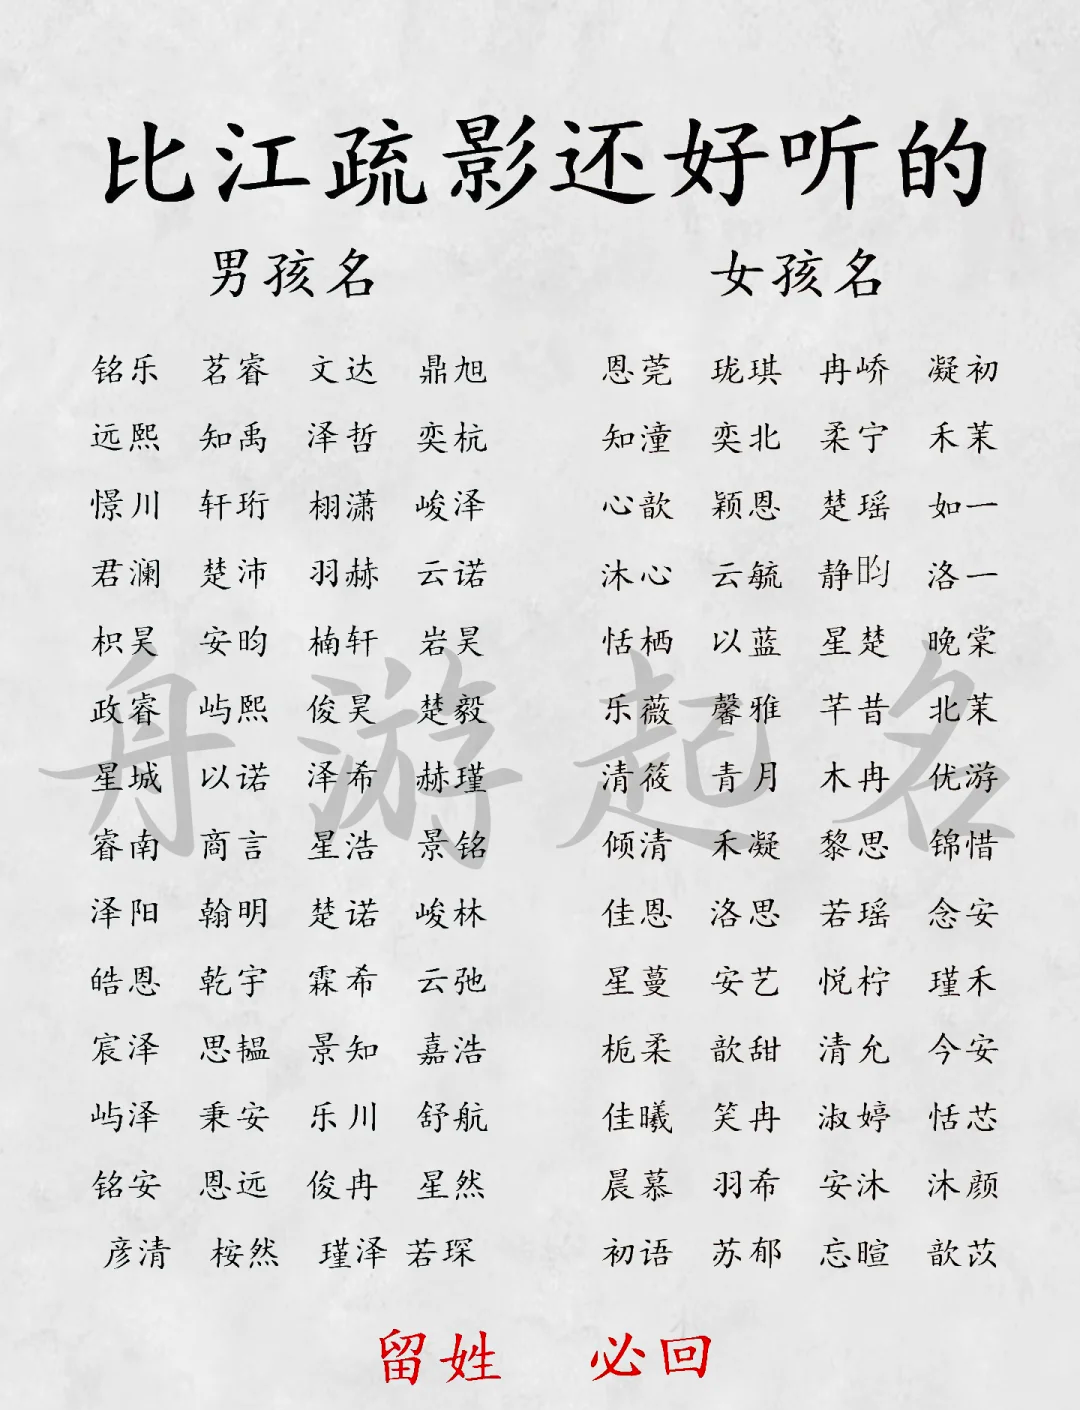 比江疏影还好听的
男孩名 女孩名
铭乐 茗睿 文达 鼎旭 恩莞 珑琪 冉峤 凝初
远熙 知禹 泽哲 奕杭 知潼 奕北 柔宁 禾茉
憬川 轩珩 栩潇 峻泽 心歆 颖恩 楚瑶 如一
君澜 楚沛 羽赫 云诺 沐心 云毓 静昀 洛一
枳昊 安昀 楠轩 岩昊 恬栖 以蓝 星楚 晚棠
政睿 屿熙 俊昊 楚毅 乐薇 馨雅 芊昔 北茉
舟游起名
星城 以诺 泽希 赫瑾 清筱 青月 木冉 优游
睿南 商言 星浩 景铭 倾清 禾凝 黎思 锦惜
泽阳 翰明 楚诺 峻林 佳恩 洛思 若瑶 念安
皓恩 乾宇 霖希 云弛 星蔓 安艺 悦柠 瑾禾
宸泽 思韫 景知 嘉浩 栀柔 歆甜 清允 今安
屿泽 秉安 乐川 舒航 佳曦 笑冉 淑婷 恬芯
铭安 恩远 俊冉 星然 晨慕 羽希 安沐 沐颜
彦清 桉然 瑾泽 若琛 初语 苏郁 忘暄 歆苡
留姓 必回